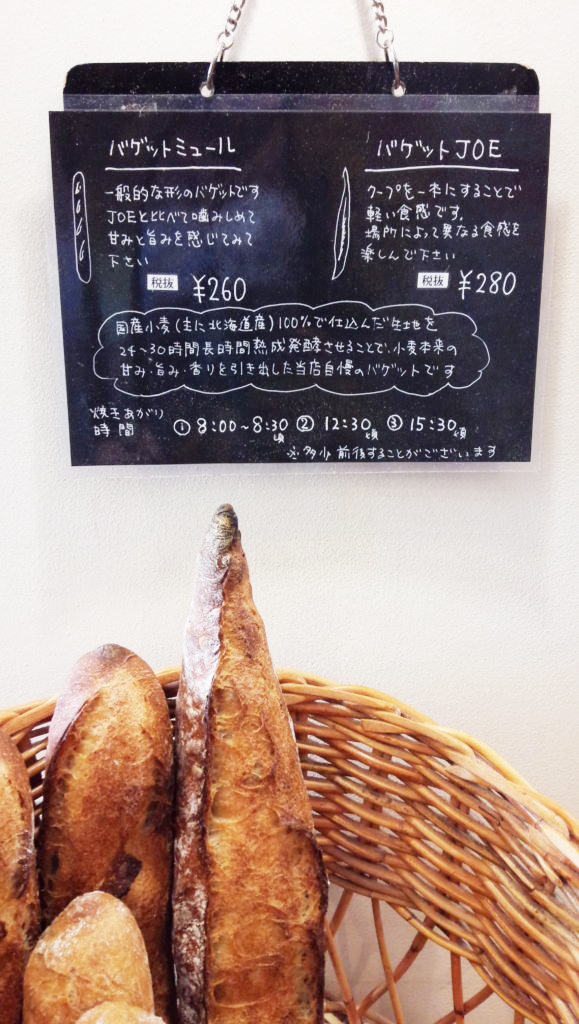 バゲットミュール
一般的な形のバゲットです
JOEと比べて噛みしめて
甘みと旨みを感じてみて
下さい
税抜 ¥260
バゲットJOE
クープを一本にすることで
軽い食感です。
場所によって異なる食感を
楽しんで下さい
税抜 ¥280
国産小麦(主に北海道産)100%で仕込んだ生地を
24~30時間長時間熟成発酵させることで、小麦本来の
甘み・旨み・香りを引き出した当店自慢のバゲットです
焼きあがり
時間 ① 8:00~8:30頃 ② 12:30頃 ③ 15:30頃
※多少前後することがございます